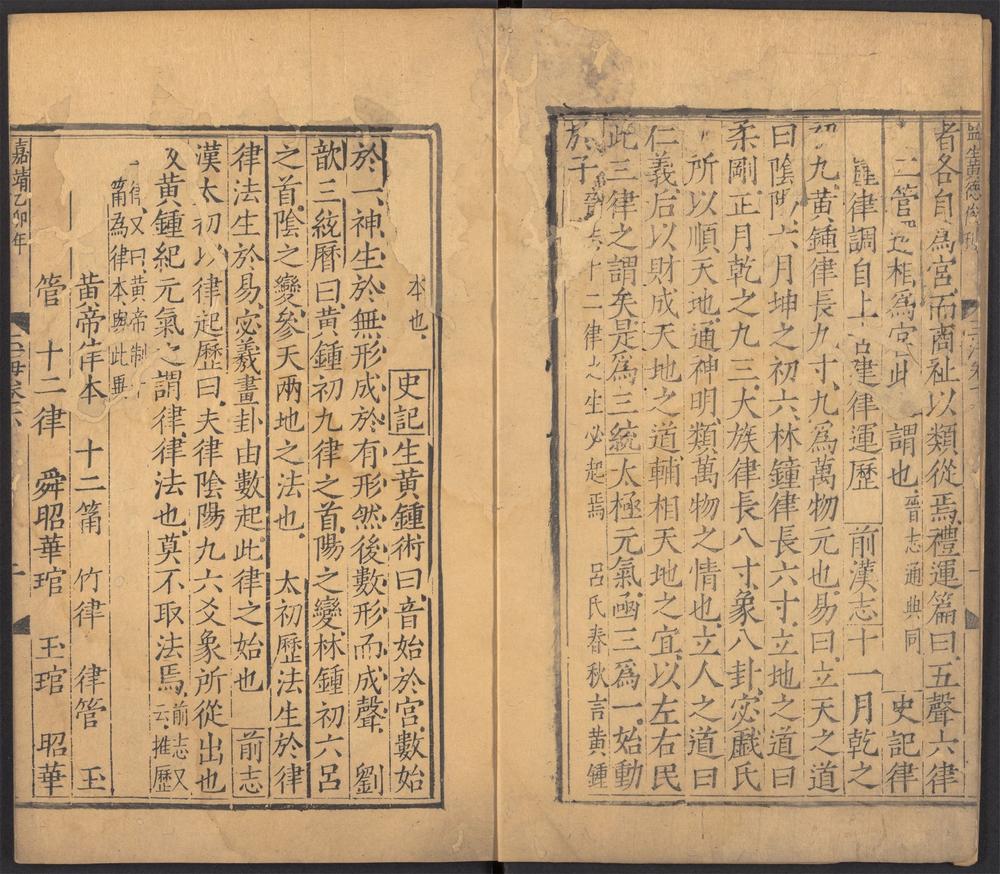 監生黃德
者各自爲宮而商祉以類從焉禮運篇曰五聲六律
二管迭相爲宮此 謂也晉志通典同 史記律
律調自上 建律運歷 前漢志十一月乾之
九黃鍾律長九寸九爲萬物元也易曰立天之道
曰陰 六月坤之初六林鐘律長六寸立地之道曰
柔剛正月乾之九三大族律長八寸象八卦宓戲氏
所以順天地通神明類萬物之情也立人之道曰
仁義后以財成天地之道輔相天地之宜以左右民
此三律之謂矣是爲三統太極元氣函三爲一始動
於子 十二律之生必起焉 呂氏春秋言黃鍾
本也 史記生黃鍾術曰音始於宮數始
於一神生於無形成於有形然後數形而成聲 劉
歆三統曆曰黃鍾初九律之首陽之變林鍾初六呂
之首陰之變參天兩地之法也 太初歷法生於律
律法生於易宓羲畫卦由數起此律之始也 前志
漢太初以律起歷曰夫律陰陽九六爻象所從出也
黃鍾紀元氣之謂律律法也莫不取法焉前志又云推歷
律又曰黃帝制十
筩為律本與此異
黃帝律本 十二筩 竹律 律管 玉
管 十二律 舜昭華琯 玉琯 昭華
嘉靖乙卯年